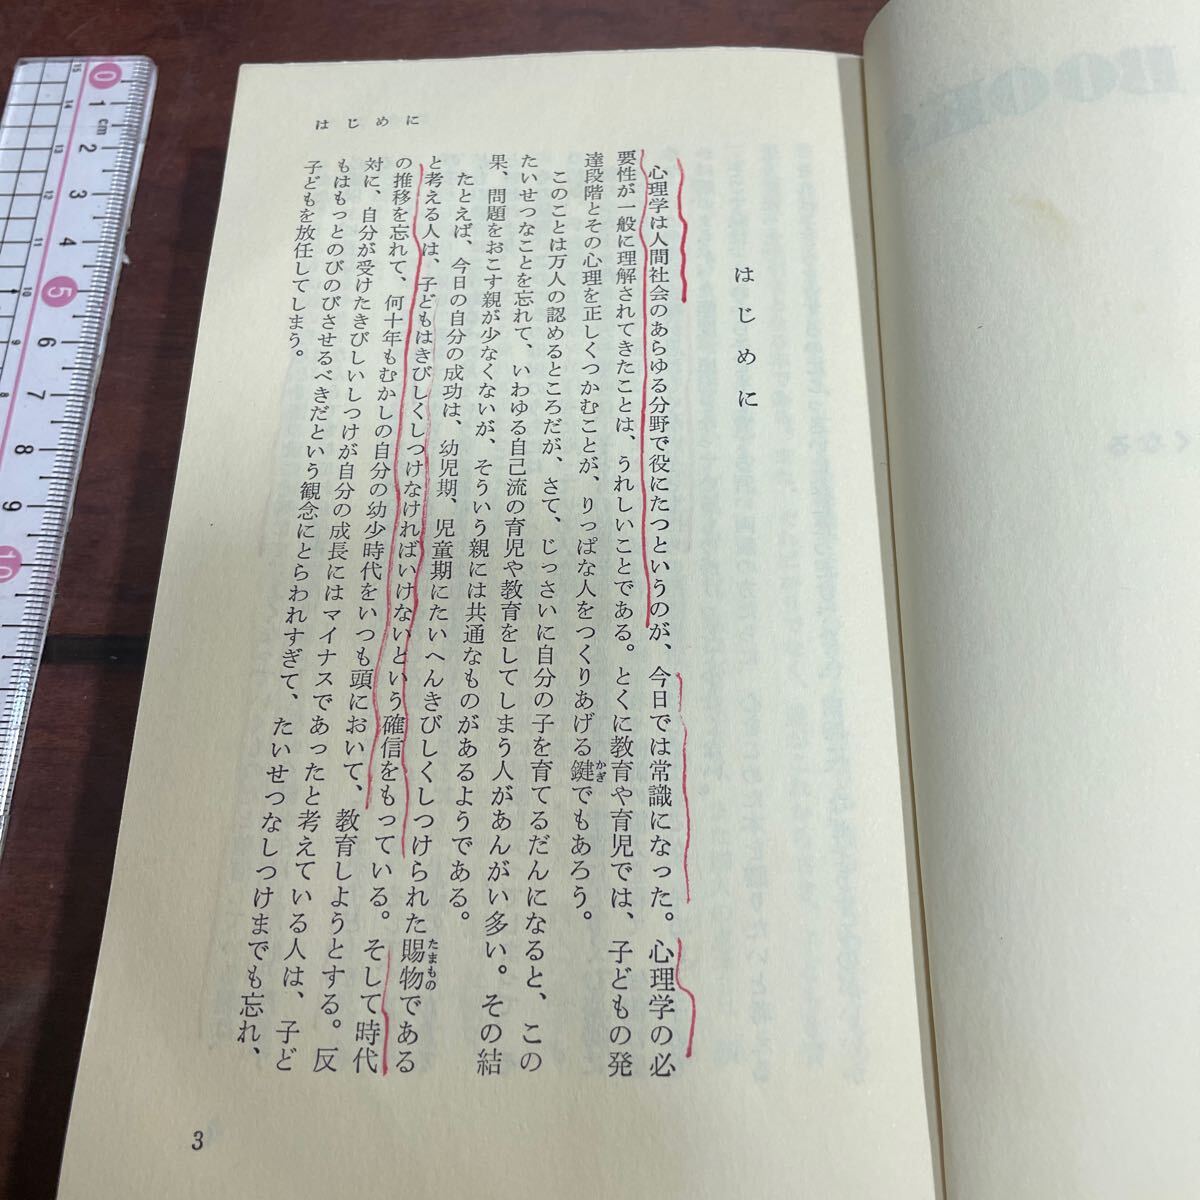 はじめに
はじめに
心理学は人間社会のあらゆる分野で役にたつというのが、今日では常識になった。心理学の必
要性が一般に理解されてきたことは、うれしいことである。とくに教育や育児では、子どもの発
達段階とその心理を正しくつかむことが、りっぱな人をつくりあげる鍵かぎでもあろう。
このことは万人の認めるところだが、さて、じっさいに自分の子を育てるだんになると、この
たいせつなことを忘れて、いわゆる自己流の育児や教育をしてしまう人があんがい多い。その結
果、問題をおこす親が少なくないが、そういう親には共通なものがあるようである。
たとえば、今日の自分の成功は、幼児期、児童期にたいへんきびしくしつけられた賜物たまものである
と考える人は、子どもはきびしくしつけなければいけないという確信をもっている。そして時代
の推移を忘れて、何十年もむかしの自分の幼少時代をいつも頭において、教育しようとする。反
対に、自分が受けたきびしいしつけが自分の成長にはマイナスであったと考えている人は、子ど
もはもっとのびのびさせるべきだという観念にとらわれすぎて、たいせつなしつけまでも忘れ、
子どもを放任してしまう。
3
BOOKS
くなる
0 1 cm 2 3 4 5 6 7 8 9 10